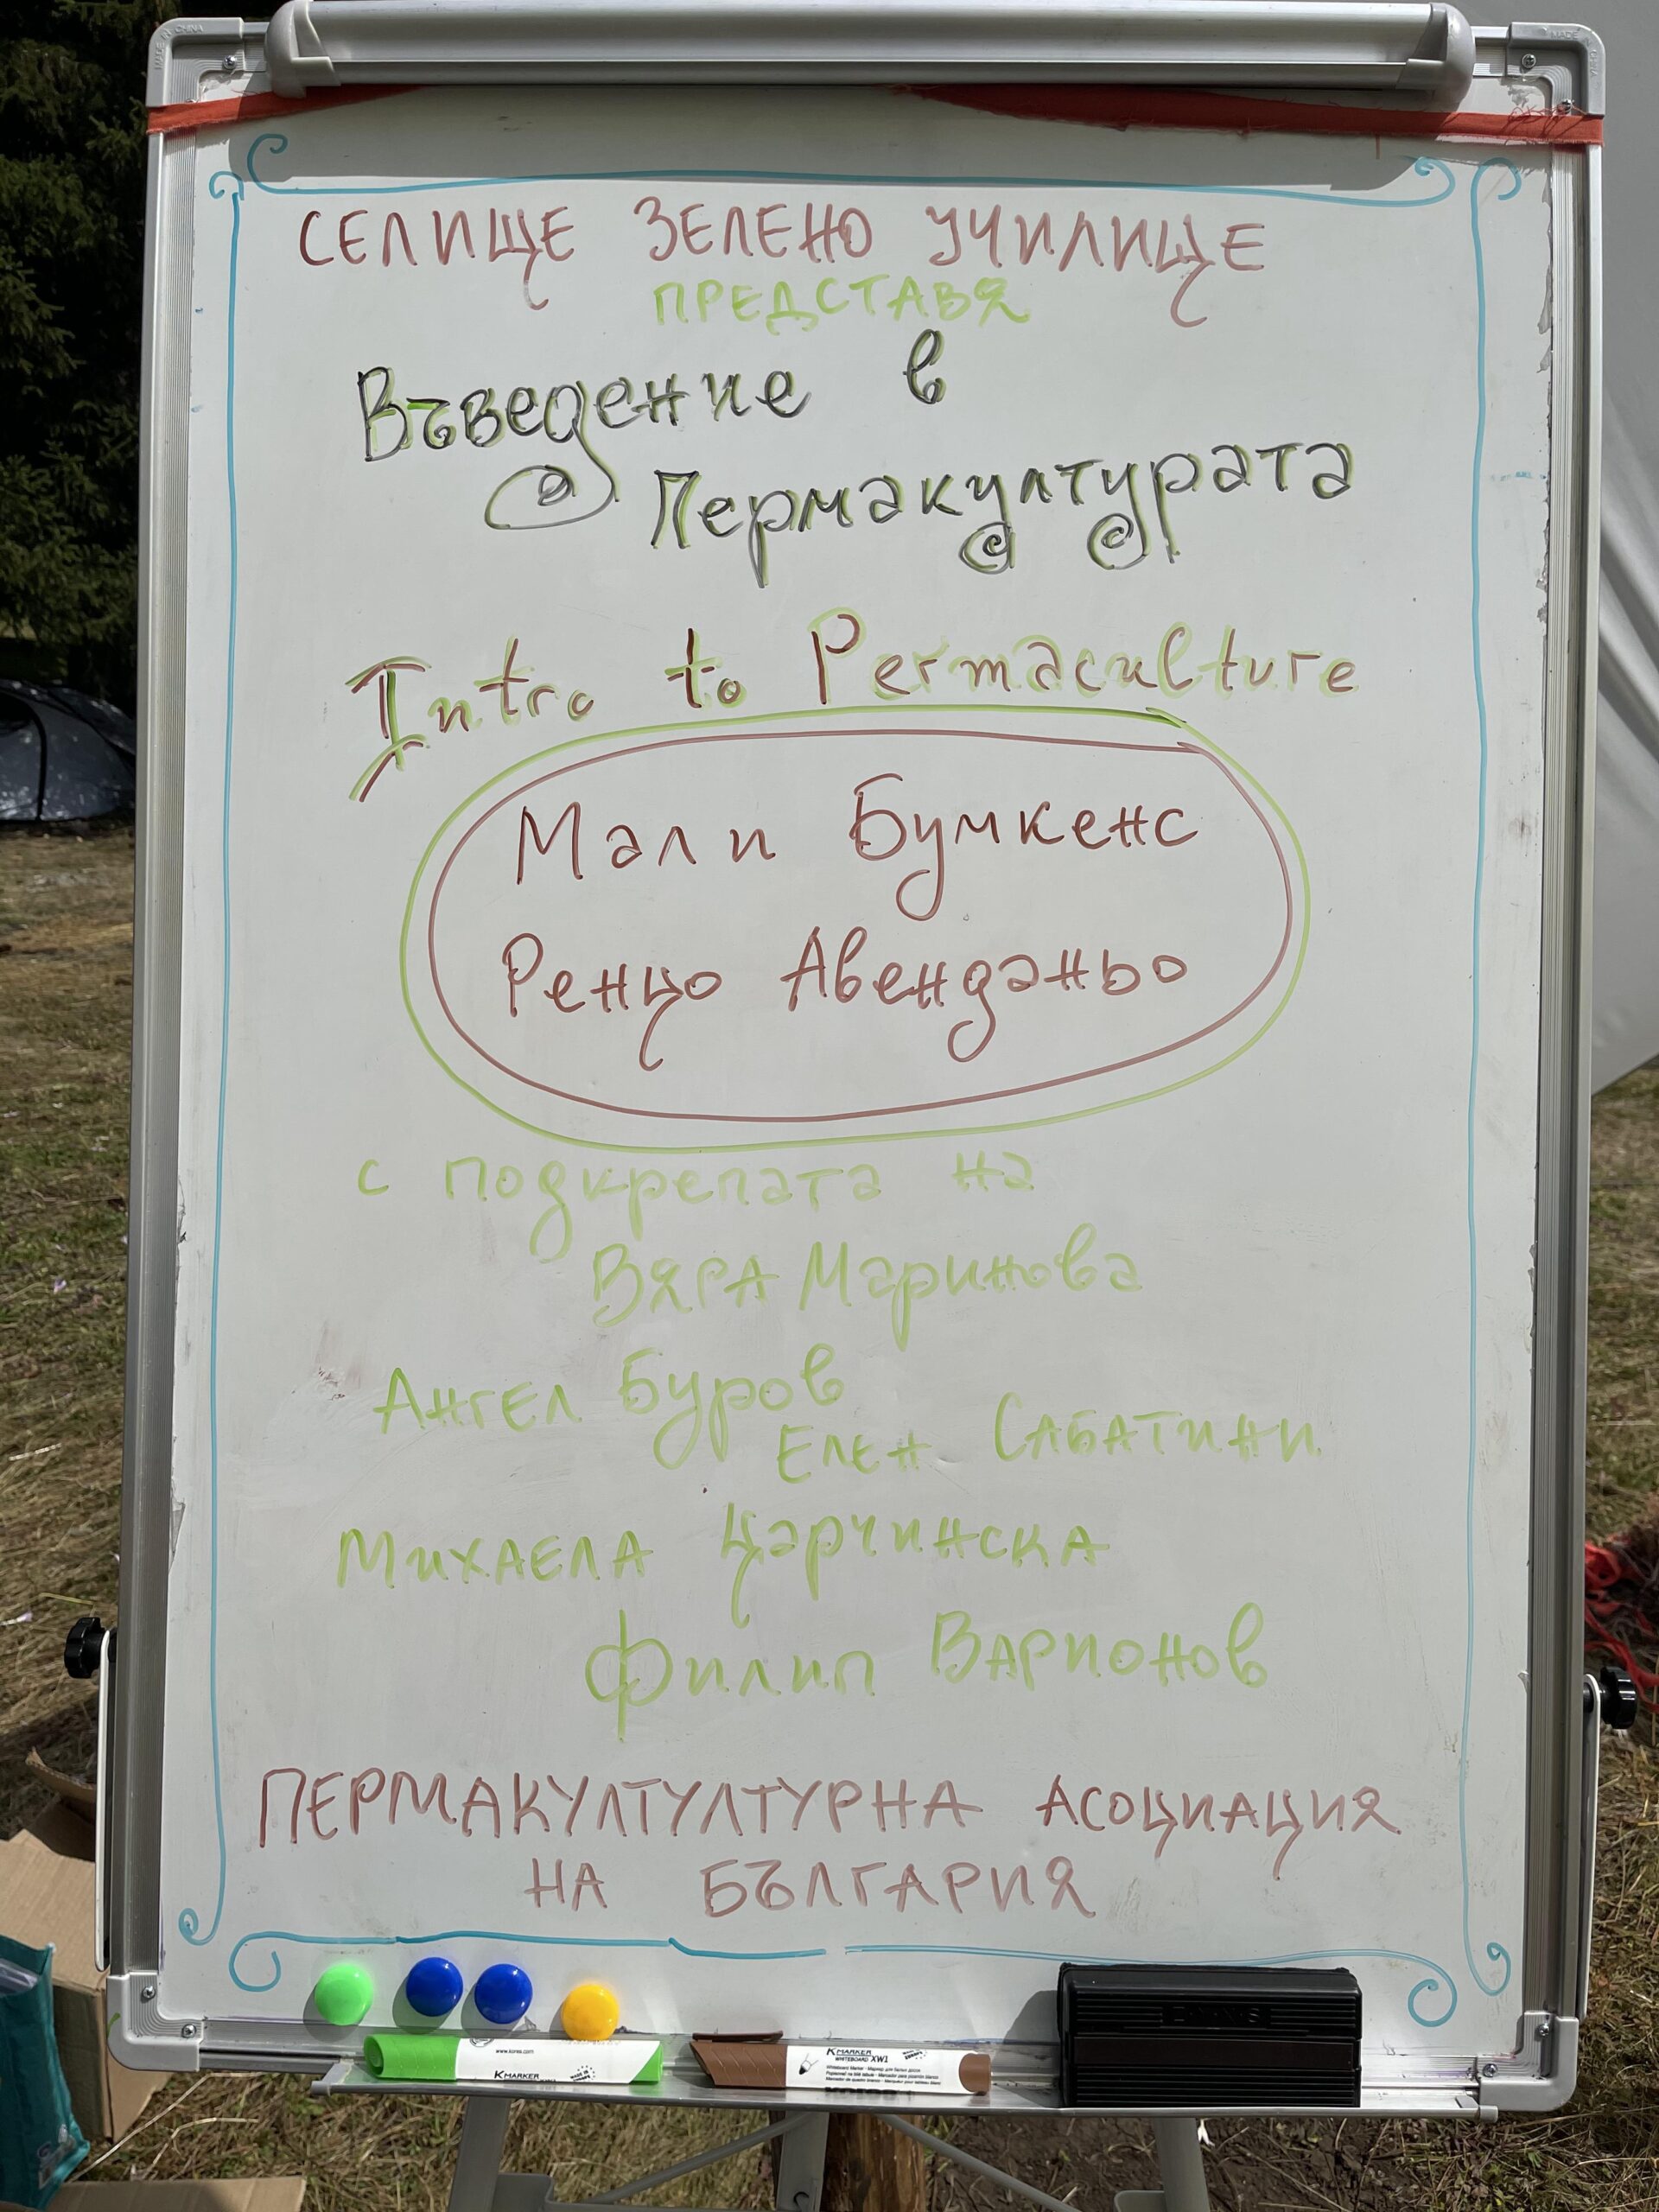 СЕЛИЩЕ ЗЕЛЕНО УЧИЛИЩЕ
ПРЕДСТАВЯ
Въведение в
Пермакултурата
Intro to Permaculture
Мали Бумкенс
Ренцо Авенданьо
с подкрепата на
ВЯРА Маринова
Ангел Буров
Елен Сабатини
Михаела Царчинска
Филип Варионов
ПЕРМАКУЛТУЛТУРНА АСОЦИАЦИЯ
НА БЪЛГАРИЯ
www.kores.com
K MARKER
K MARKER
WHITEBOARD XW1